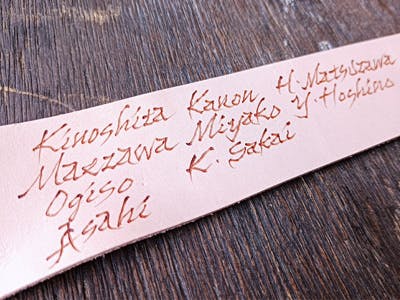 Kinoshita Kanon H. Matsuzawa
Maezawa Miyako Y. Hoshino
Ogiso K. Sakai
Asahi